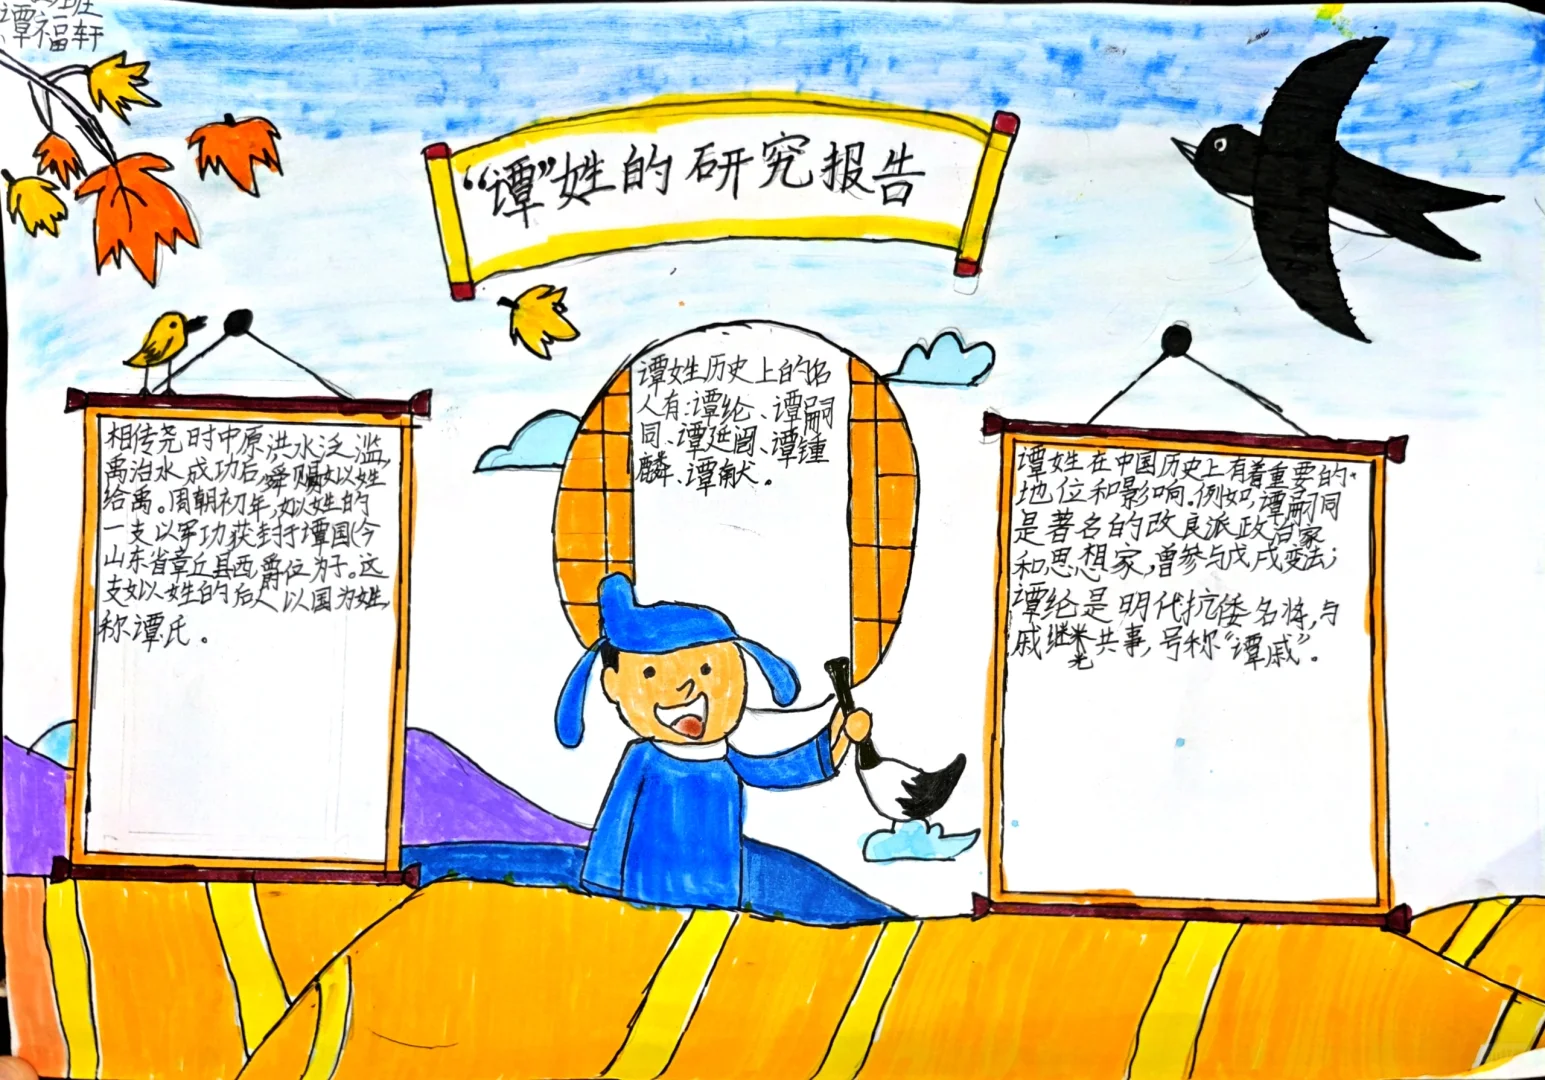 班
谭福轩
“谭”姓的研究报告
相传尧时中原洪水泛滥,
禹治水成功后,舜赐姒姓
给禹。周朝初年,姒姓的
一支以军功获封于谭国(今
山东省章丘县西,爵位为子。这
支姒姓的后人以国为姓,
称谭氏。
谭姓历史上的名
人有:谭纶、谭嗣
同、谭延闿、谭锺
麟、谭献。
谭姓在中国历史上有着重要的
地位和影响.例如,谭嗣同
是著名的改良派政治家
和思想家,曾参与戊戌变法;
谭纶是明代抗倭名将,与
戚继光共事,号称“谭戚”。